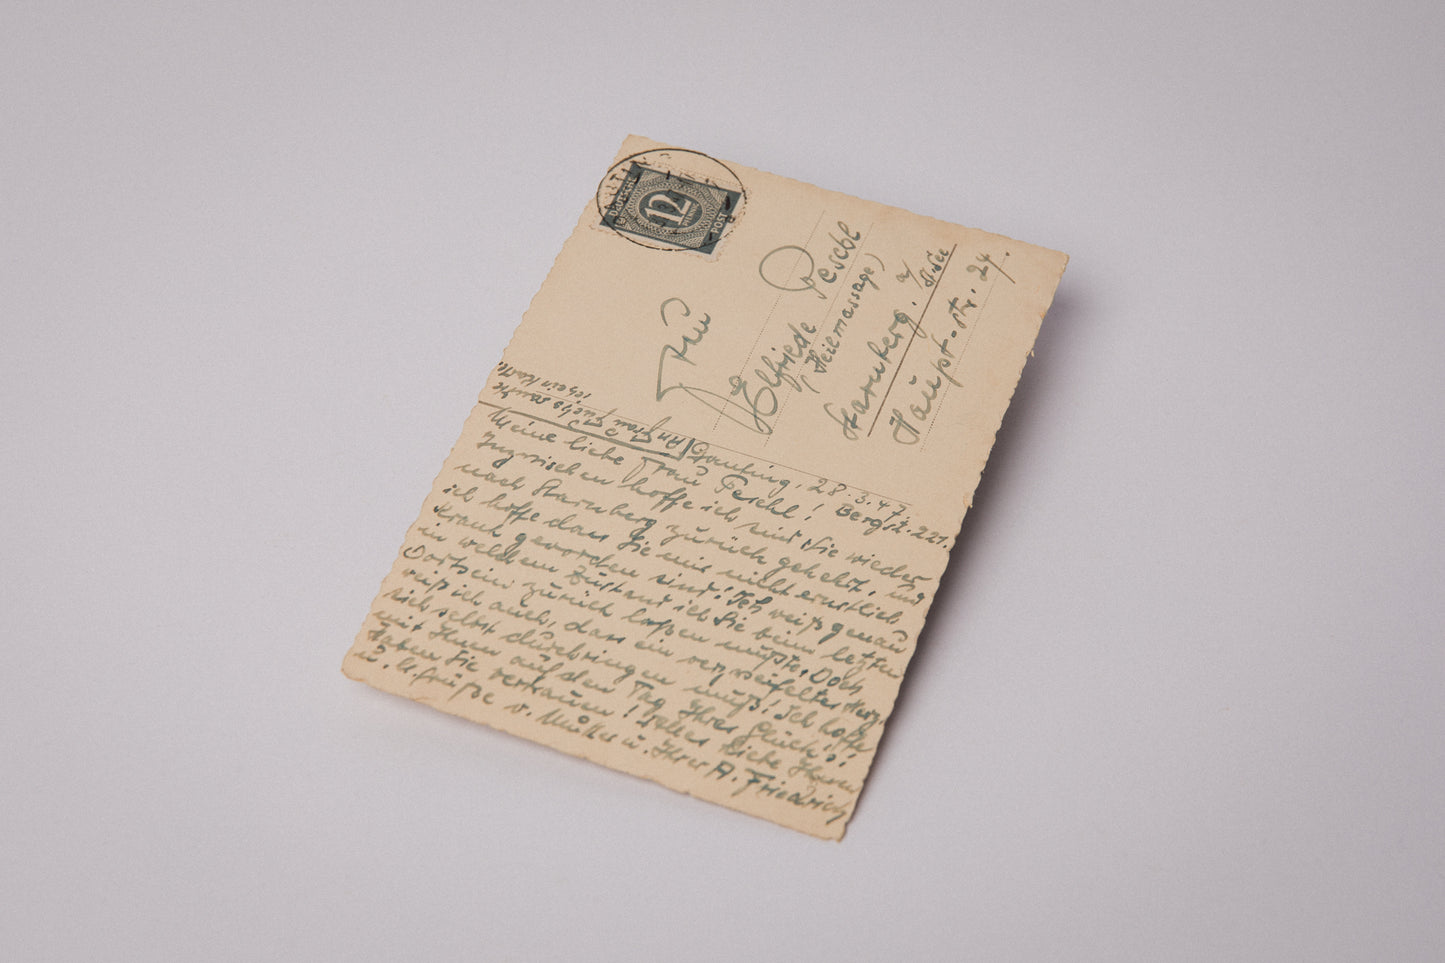 DEUTSCHE
12
PFENNIG
POST
Frau
Elfriede Peschl
(Heilmassage)
Starnberg. a/ St. See
Haupt-str. 24.
An Frau Fuchs sandte
ich ein Karte.
Gauting, 28.3.47.
Bergstr. 221.
Meine liebe Frau Peschl!
Inzwischen hoffe ich sind Sie wieder
nach Starnberg zurück gekehrt, und
ich hoffe dass Sie mir nicht ernstlich
Krank geworden sind! Ich weiß genau
in welchem Zustand ich Sie beim letzten
Dortsein zurück laßen mußte. Doch
weiß ich auch, dass ein verzweifeltes Herz
sich selbst durchringen muß! Ich hoffe
mit Ihnen auf den Tag Ihres Glück's!
Haben Sie vertrauen! Alles Liebe Ihnen
u. Grüße v. Mutter u. Ihrer A. Friedrich